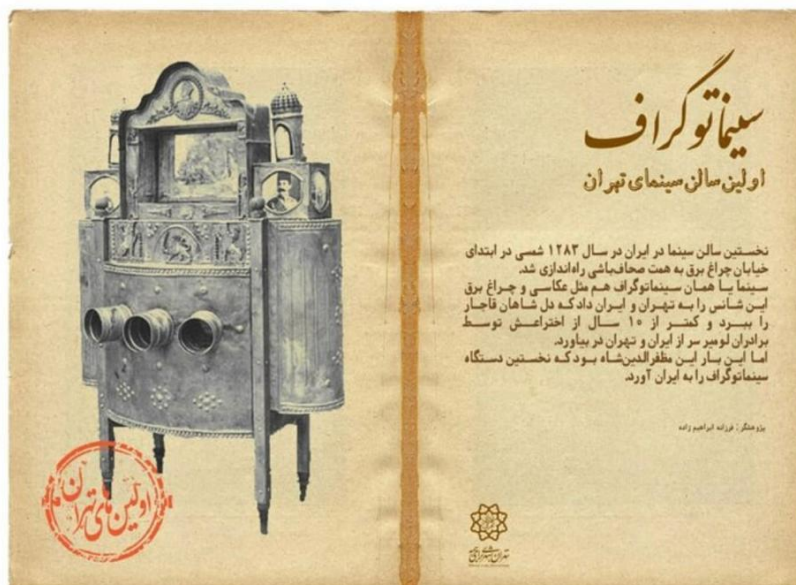 سینماتوگراف
اولین سالن سینمای تهران
نخستین سالن سینما در ایران در سال ۱۲۸۳ شمسی در ابتدای
خیابان چراغ برق به همت صحافباشی راه‌اندازی شد.
سینما یا همان سینماتوگراف هم مثل عکاسی و چراغ برق
این شانس را به تهران و ایران داد که دل شاهان قاجار
را ببرد و کمتر از ۱۰ سال از اختراعش توسط
برادران لومیر سر از ایران و تهران در بیاورد.
اما این بار این مظفرالدین‌شاه بود که نخستین دستگاه
سینماتوگراف را به ایران آورد.
پژوهشگر: فرزانه ابراهیم زاده
اولین‌های تهران